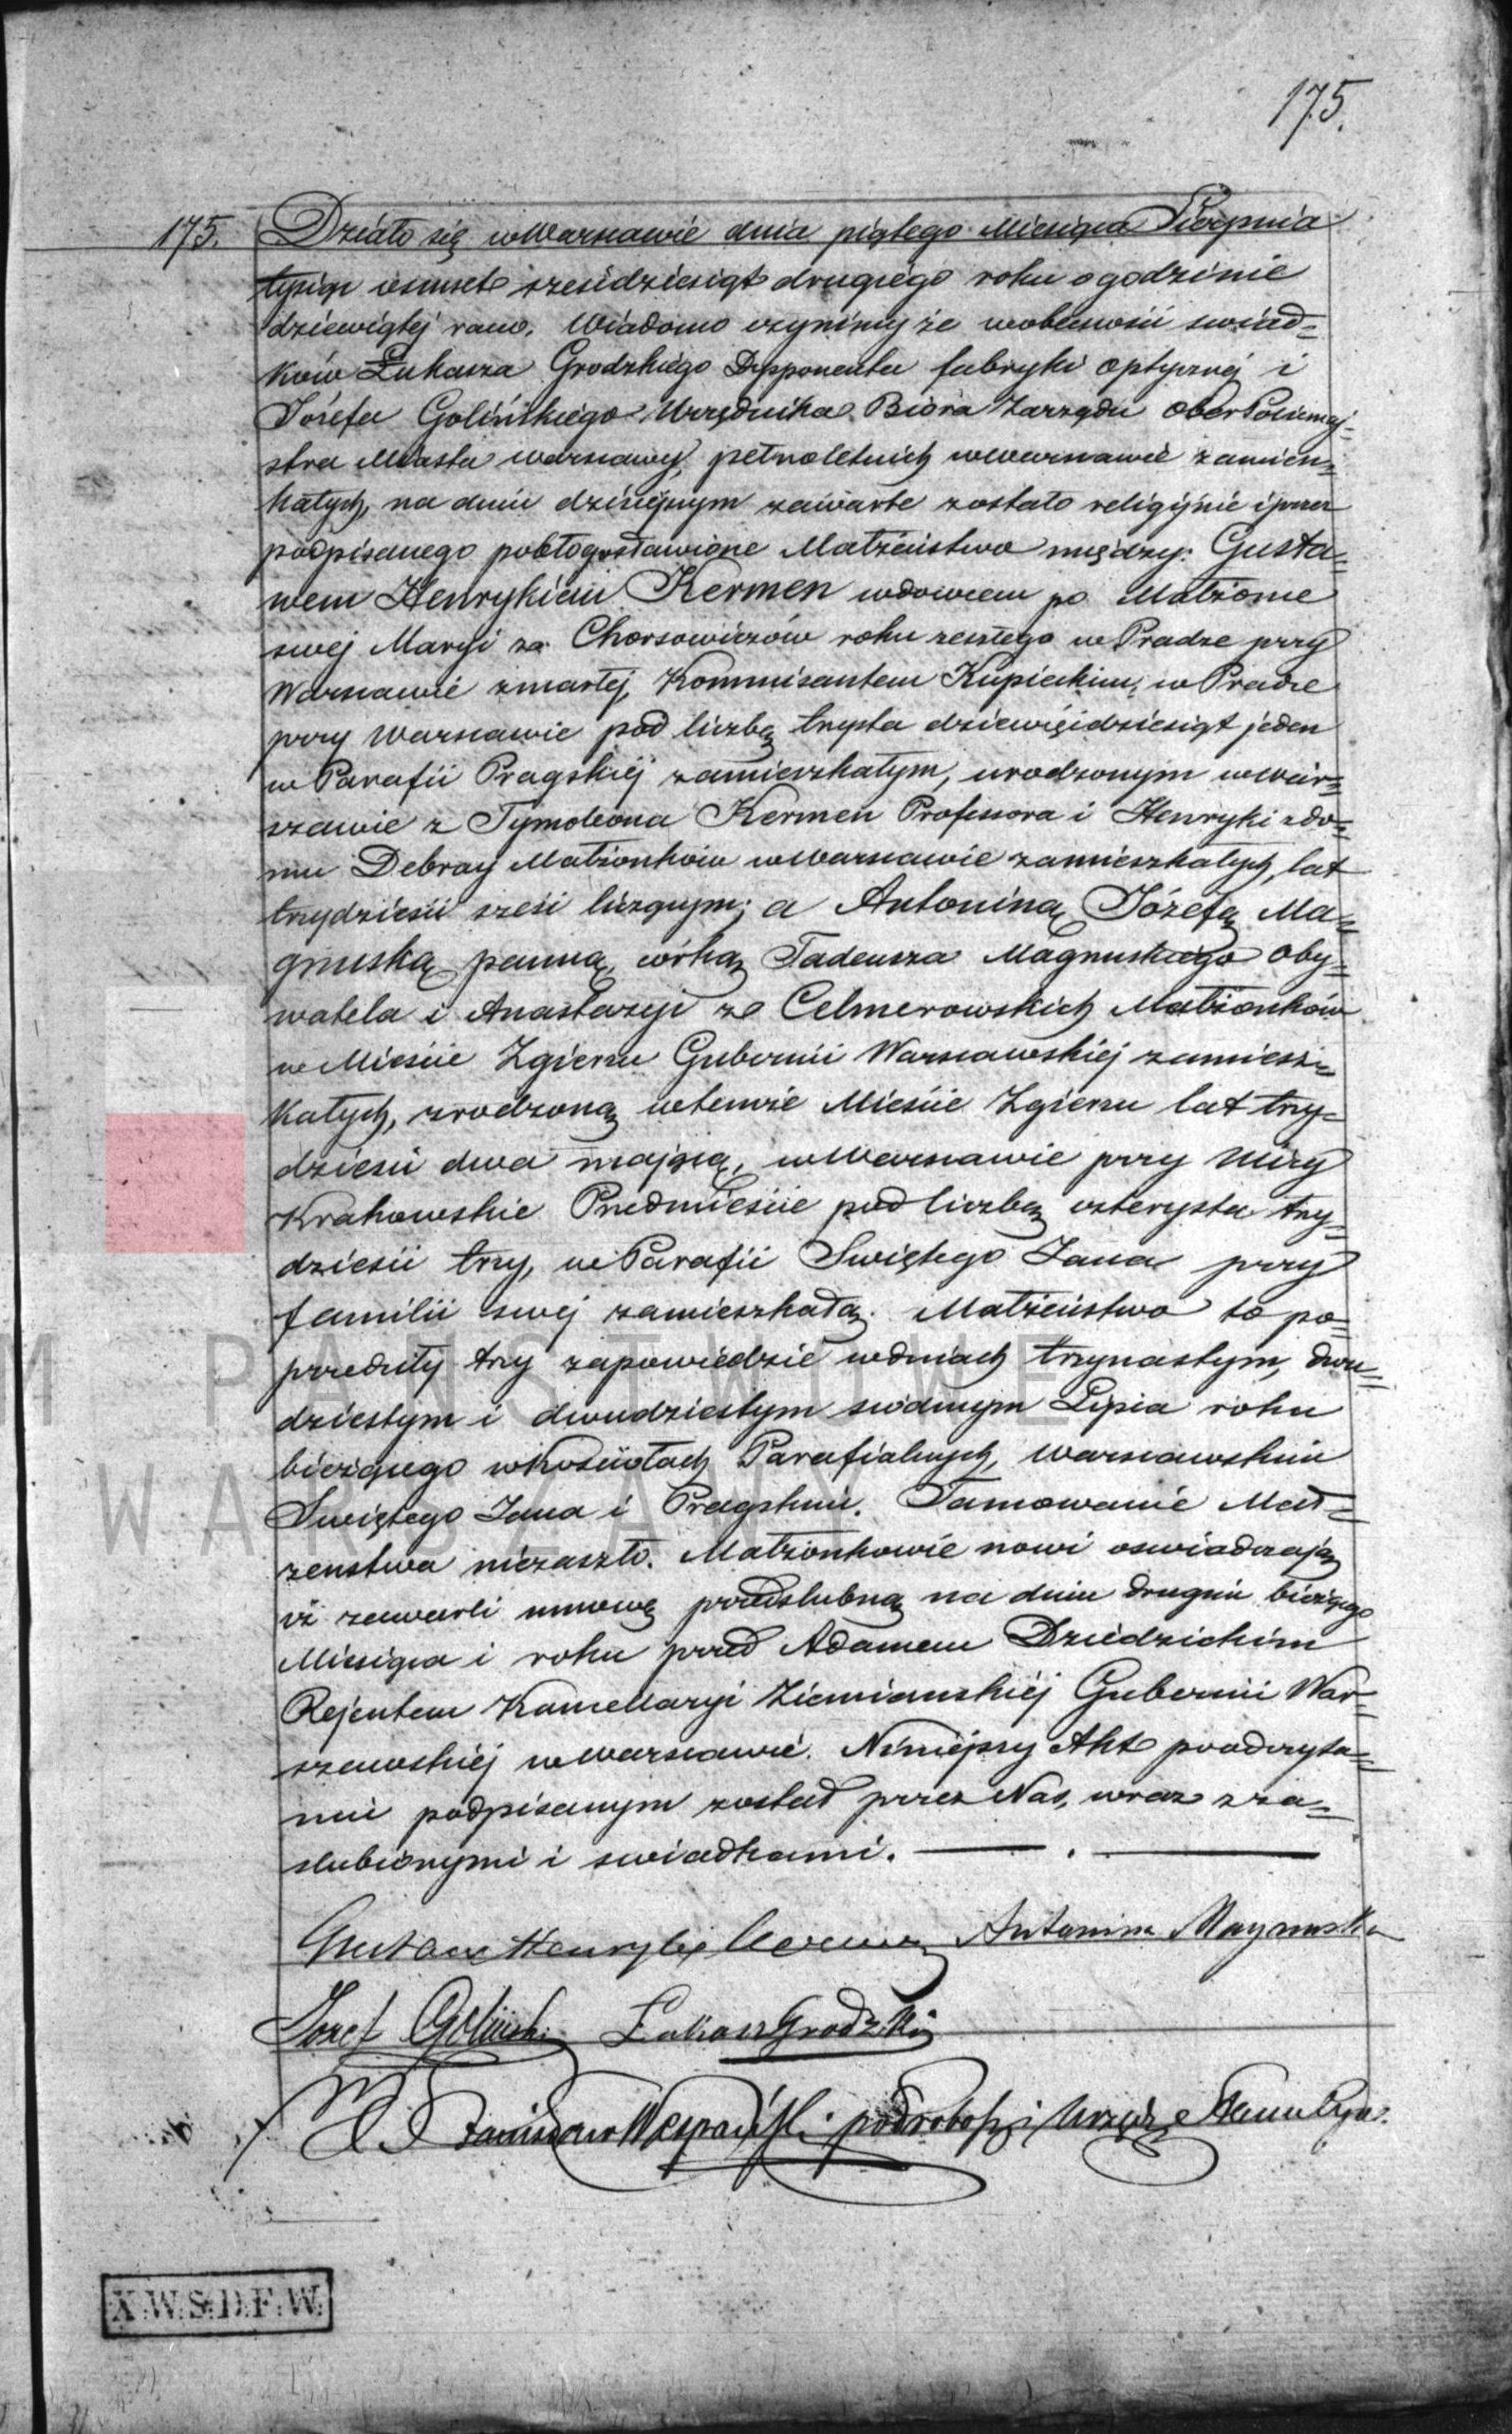 175.
175. Działo się w Warszawie dnia piątego Miesiąca Sierpnia
tysiąc osmset sześćdziesiąt drugiego roku o godzinie
dziewiątej rano. Wiadomo czynimy że wobecności swiad=
ków Łukasza Grodzkiego Dysponenta fabryki optycznej i
Józefa Golińskiego Urzędnika Bióra Zarządu OberPolicmaj=
stra Miasta Warszawy, pełnoletnich w Warszawie zamiesz=
kałych, na dniu dzisiejszym zawarte zostało religijnie i przez
podpisanego pobłogosławione Małżeństwo między: Gusta=
wem Henrykiem Kermen wdowcem po Małżonce
swej Maryi z Chorsowiczów roku zeszłego w Pradze przy
Warszawie zmarłej, Kommisantem Kupieckim, w Pradze
przy Warszawie pod liczbą trzysta dziewięćdziesiąt jeden
w Parafii Pragskiéj zamieszkałym, urodzonym w War=
szawie z Tymoleona Kermen Professora i Henryki z do=
mu Debray Małżonków w Warszawie zamieszkałych, lat
trzydzieści sześć liczącym; a Antoniną Józefą Ma=
gnuską panną, córką Tadeusza Magnuskiego Oby=
watela i Anastazyi z Celmerowskich Małżonków
w Mieście Zgierzu Gubernii Warszawskiéj zamiesz=
kałych, zrodzoną w temże Mieście Zgierzu lat trzy=
dzieści dwa mającą, w Warszawie przy Ulicy
Krakowskie Przedmieście pod liczbą czterysta trzy=
dzieści trzy, w Parafii Swiętego Jana przy
familii swej zamieszkałą. Małżeństwo to po=
przedziły trzy zapowiedzie w dniach trzynastym, dwu=
dziestym i dwudziestym siódmym Lipca roku
bieżącego w Kościołach Parafialnych, Warszawskim
Swiętego Jana i Pragskim. Tamowanie Mał=
żenstwa niezaszło. Małżonkowie nowi oswiadczają
iż zawarli umowę przedslubną na dniu drugim bieżącego
Miesiąca i roku przed Adamem Dziedzickim
Rejentem Kancellaryi Ziemiańskiéj Gubernii War=
szawskiéj w Warszawie. Niniejszy Akt po odczyta=
niu podpisanym został przez Nas, wraz z za=
slubionymi i swiadkami.
Gustaw Henryk Kermen Antonina Magnuska
Józef Goliński Łukasz Grodzki
X. Stanisław
X.W.S.D.F.W.
M PAŃSTWOWE
WARSZAWY